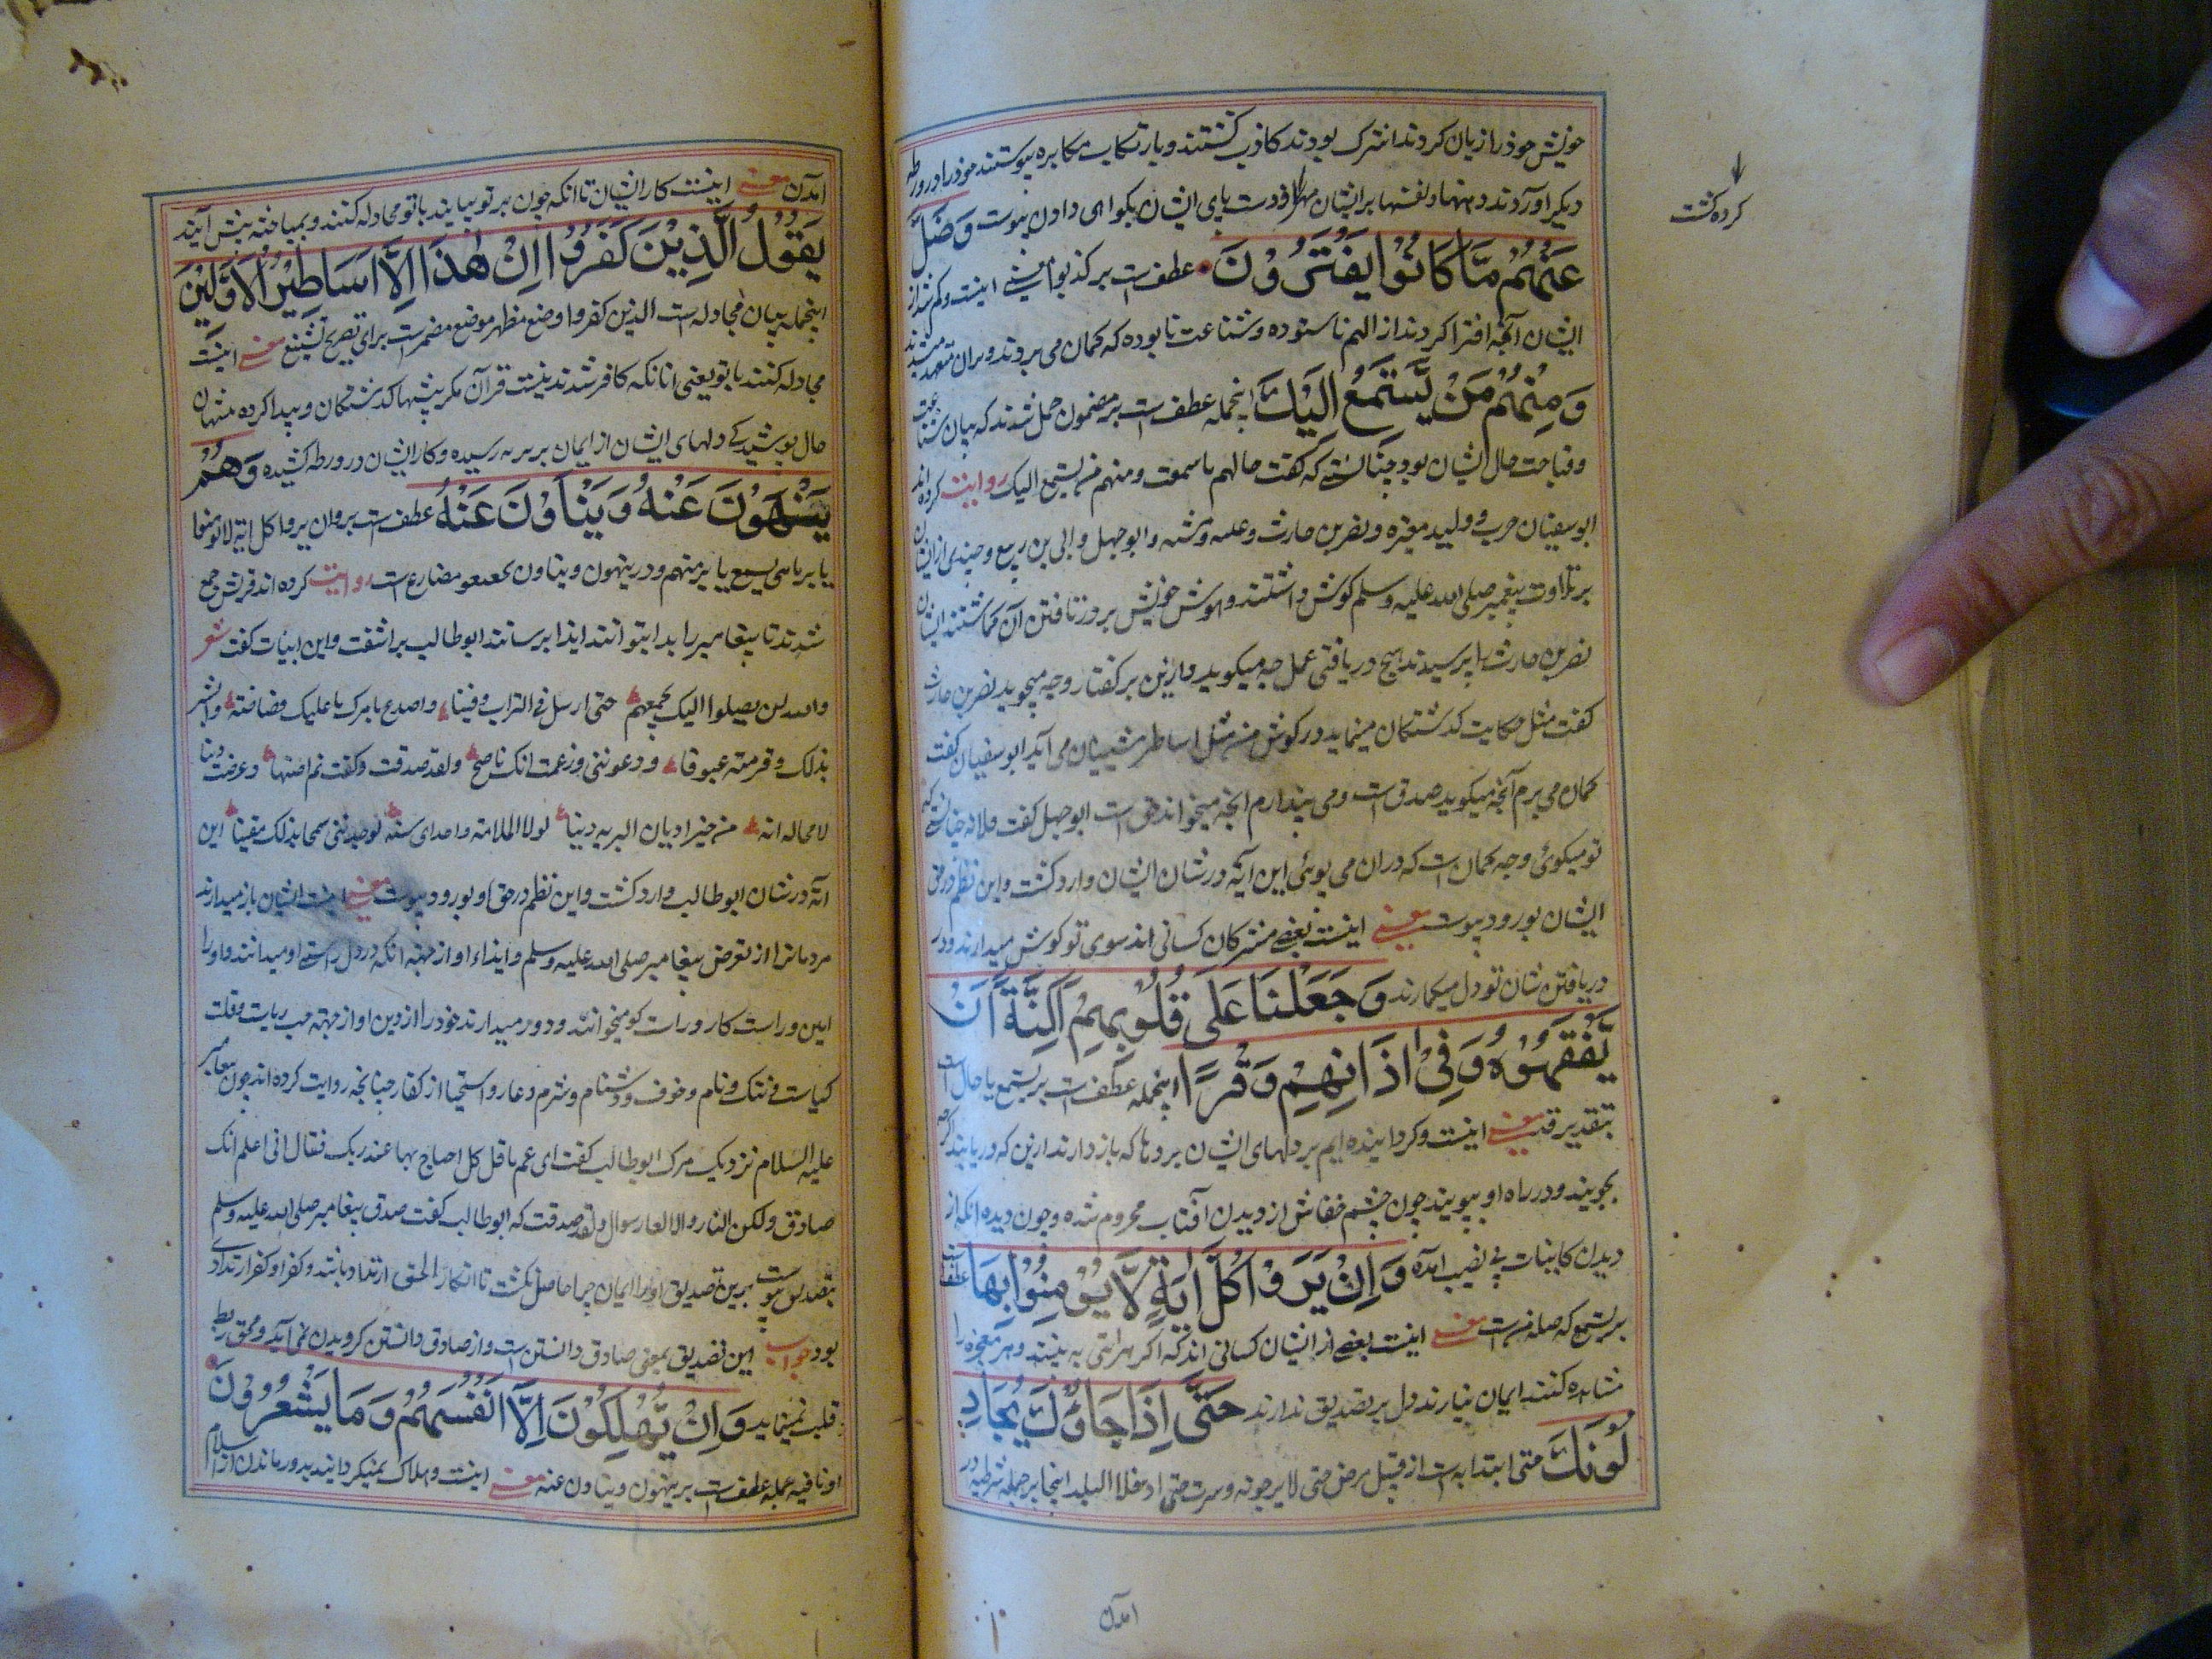 خویش خودرا زیان کردند انترک بودند کاذب کشتند وبارتکاب مکابره پیوستند خودرا درورطه
دیکر اوردند ومنها ولفتها بر ایشان مهر افروت بای ایشان بکواهی دادن پیوت وَضَلَّ
عَنْهُمْ مَّا كَانُوْا يَفْتَرُوْنَ عطف است بر کذبوا معنی اینست وکم شد از
ایشان آنچه افترا کردند از الهم ناستوده وشناعت نابوده که کمان می بردند وبران متعهد میشدند
وَمِنْهُمْ مَنْ يَّسْتَمِعُ اِلَيْكَ اینجمله عطف است بر مضمون جمل شدند که بیان شناعت
وقباحت حال ایشان بود چنانستی که کفت حالهم ما سمعت ومنهم من یستمع الیک روایت کرده اند
ابوسفیان حرب و ولید مغیره ونضر بن حارث وعتبه وشیبه وابوجهل وابی بن ربیع وچندی از ایشان
بر تلاوت پیغمبر صلی الله علیه وسلم کوش داشتند وهوش خویش بر دریافتن آن کماشتند ایشان
نضر بن حارث را پرسیدند هیچ دریافتی عمل چه میکوید وازین بر کفتار وچه میجوید نضر بن حارث
کفت مثل حکایت کذشتکان مینماید در کوش من مثل اساطیر پیشینیان می آید ابوسفیان کفت
کمان می برم آنچه میکوید صدق است ومی پندارم انچه میخواند حق است ابوجهل کفت کلا نه چنانستی که
تو میکوئی وچه کمان است که دران می پوئی این آیة در شان ایشان وارد کشت واین نظم در حق
ایشان بورود پیوست معنی اینست بعضی مشرکان کسانی اند سوی تو کوش میدارند ودر
دریافتن شان تو دل میکمارند وَجَعَلْنَا عَلٰى قُلُوْبِهِمْ اَكِنَّةً اَنْ
يَّفْقَهُوْهُ وَفِيْ اٰذَانِهِمْ وَقْرًا اینجمله عطف است بر یستمع یا حال است
بتقدیر قد معنی اینست وکردانیده ایم بر دلهای ایشان پردها که باز دارند ازین که دریابند اکرچه
بجویند ودر راه او بپویند چون چشم خفاش از دیدن آفتاب محروم شده وچون دیده انکه از
دیدن کاینات بی نصیب امده وَاِنْ يَّرَوْا كُلَّ اٰيَةٍ لَّا يُؤْمِنُوْا بِهَا عطف است
بر یستمع که صله من است معنی اینست بعضی از ایشان کسانی اند که اکر هر ایتی به بینند وهر معجزه را
مشاهده کنند ایمان نیارند ودل بر تصدیق ندارند حَتّٰى اِذَا جَاؤُكَ يُجَادِ
لُوْنَكَ حتی ابتدایه است از قبیل مرض حتی لا یرجونه وسرت حتی ادخل البلد اینجا بر جمله شرطیه در
کرده کشت
امدن
امدن معنی اینست کار ایشان تا انکه چون بر تو بیایند با تو مجادله کنند وبمباحثه پیش آیند
يَقُوْلُ الَّذِيْنَ كَفَرُوْا اِنْ هٰذَا اِلَّا اَسَاطِيْرُ الْاَوَّلِيْنَ
اینجمله بیان مجادله است الذین کفروا وضع مظهر موضع مضمر است برای تصریح تشنیع معنی اینست
مجادله کنند با تو یعنی انانکه کافر شدند نیست قرآن مکر پیشها کذشتکان وپیدا کرده منهیان
حال پوشیدکی دلهای ایشان از ایمان برین مرتبه رسیده وکار ایشان در ورطه کشیده وَهُمْ
يَنْهَوْنَ عَنْهُ وَيَنْأَوْنَ عَنْهُ عطف است بر وان یروا کل ایة لا یومنوا
یا بر ما هی یستمع یا بر منهم ودر ینهون ویناون مضارع است روایت کرده اند قریش جمع
شدند تا پیغامبر را بد ایتوانند ایذا برسانند ابوطالب براشفت واین ابیات کفت شعر
والله لن یصلوا الیک بجمعهم حتی ارسل فی التراب دفینا واصدع بامرک ما علیک غضاضة وابشر
بذلک وقر منه عیونا ودعوتنی وزعمت انک ناصح ولقد صدقت وکنت ثم امینا وعرضت دینا
لا محاله انه من خیر ادیان البریه دینا لولا الملامة او حذای سبة لوجدتنی سمحا بذلک مبینا این
آیة در شان ابوطالب وارد کشت واین نظم در حق او بورود پیوست معنی اینست ایشان باز میدارند
مردمانرا از تعرض پیغامبر صلی الله علیه وسلم وایذاء او از جهة انکه در دل راستی او میدانند واورا
امین وراست کار وراست کو میخوانند ودور میدارند خودرا از دین او از جهة حب ریاست وقلت
کیاست وننک ونام وخوف ودشنام وشرم وعار واستحیا از کفار چنانچه روایت کرده اند چون پیغامبر
علیه السلام نزدیک مرک ابوطالب کفت ای عم ما قل کلمة احاج بها عند ربک فقال انی اعلم انک
صادق ولکن النار ولا العار سوال ولقد صدقت که ابوطالب کفت صدق پیغامبر صلی الله علیه وسلم
بتصدیق پیوست برین تصدیق اورا ایمان چرا حاصل نکشت تا انکار الحق ارتداد باشد وکفر او کفر ارتدادی
بود جواب این تصدیق بمعنی صادق دانستن است واز صادق دانستن کرویدن نمی آید وبحق ربط
قلب نمینماید وَاِنْ يُّهْلِكُوْنَ اِلَّا اَنْفُسَهُمْ وَمَا يَشْعُرُوْنَ
او نافیه جمله عطف است بر ینهون ویناون عنه معنی اینست وهلاک نمیکردانند بدور ماندن از اسلام